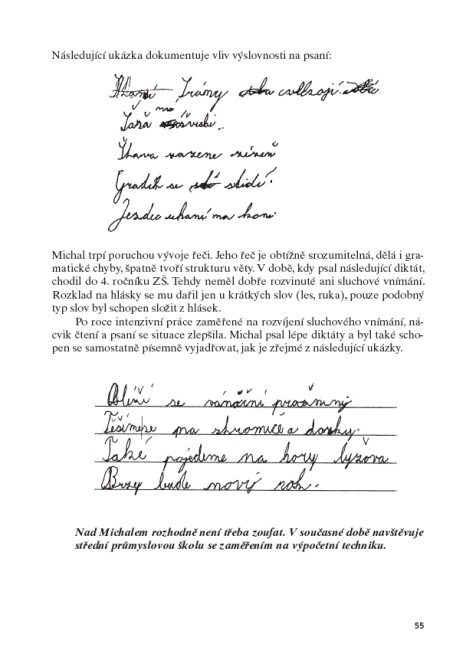 Následující ukázka dokumentuje vliv výslovnosti na psaní:
Trámy
Ťaťa
Šťava vazene
Gradik se
Jezdec uhaní na koni.
Michal trpí poruchou vývoje řeči. Jeho řeč je obtížně srozumitelná, dělá i gra-
matické chyby, špatně tvoří strukturu věty. V době, kdy psal následující diktát,
chodil do 4. ročníku ZŠ. Tehdy neměl dobře rozvinuté ani sluchové vnímání.
Rozklad na hlásky se mu dařil jen u krátkých slov (les, ruka), pouze podobný
typ slov byl schopen složit z hlásek.
Po roce intenzivní práce zaměřené na rozvíjení sluchového vnímání, ná-
cvik čtení a psaní se situace zlepšila. Michal psal lépe diktáty a byl také scho-
pen se samostatně písemně vyjadřovat, jak je zřejmé z následující ukázky.
se vánoční
Těšíme na stromice a dorky.
Také pojedeme na hory lyzova
Brzy bude nový rok.
Nad Michalem rozhodně není třeba zoufat. V současné době navštěvuje
střední průmyslovou školu se zaměřením na výpočetní techniku.
55